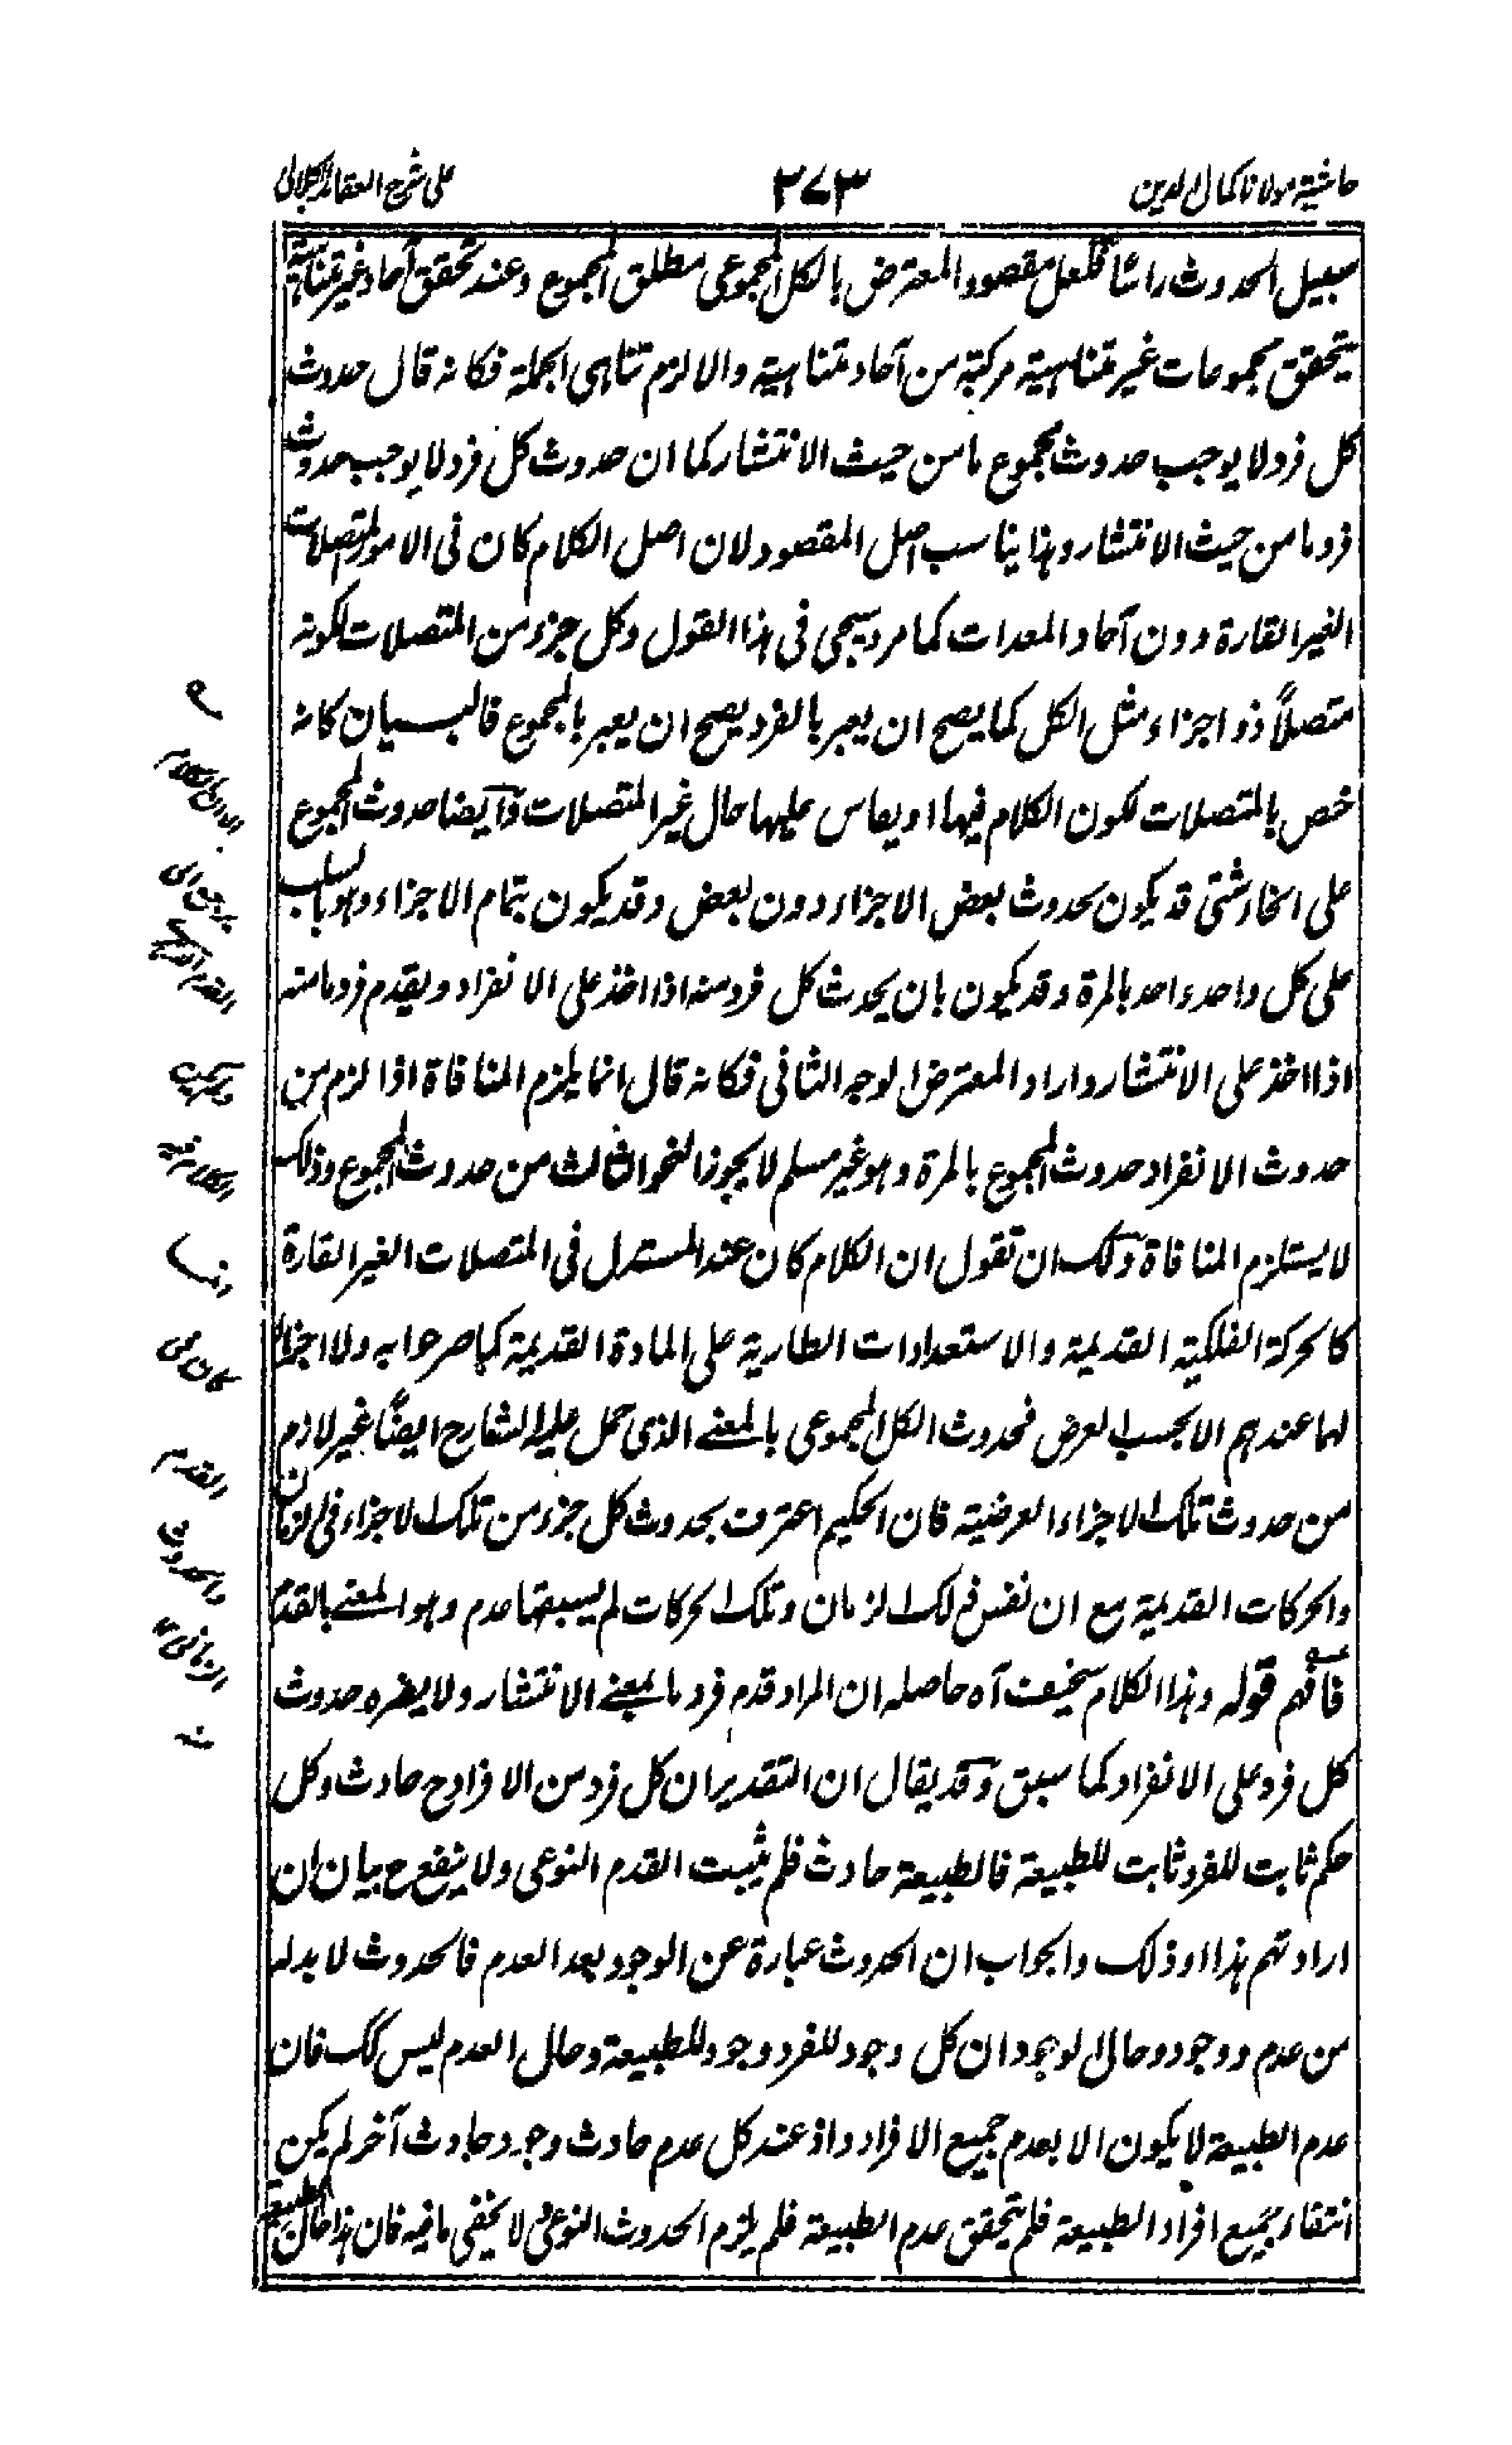 حاشیة مولانا کمال الدین
۳۷۳
علی شرح العقائد الجلالی
سبیل الحدوث راسًا فلعل مقصود المعترض بالکل المجموعی مطلق المجموع وعند تحقق آحاد غیر متناهیة
یتحقق مجموعات غیر متناهیة مرکبة من آحاد متناهیة والا لزم تناهی الجملة فکانه قال حدوث
کل فرد لا یوجب حدوث مجموع ما من حیث الانتشار کما ان حدوث کل فرد لا یوجب حدوث
فرد ما من حیث الانتشار وهذا یناسب اصل المقصود لان اصل الکلام کان فی الامور المتصلات
الغیر القارة دون آحاد المعدات کما مر وسیجی فی هذا القول وکل جزء من المتصلات لکونه
متصلاً ذو اجزاء مثل الکل کما یصح ان یعبر بالفرد یصح ان یعبر بالمجموع فالبیان کانه
خص بالمتصلات لکون الکلام فیها او یقاس علیها حال غیر المتصلات وایضا حدوث المجموع
علی انحاء شتی قد یکون بحدوث بعض الاجزاء دون بعض وقد یکون بتمام الاجزاء وهو باب
علی کل واحد واحد بالمرة وقد یکون بان یحدث کل فرد منه اذا اخذ علی الانفراد ویقدم فرد ما منه
اذا اخذ علی الانتشار واراد المعترض الوجه الثانی فکانه قال انما یلزم المنافاة اذا لزم من
حدوث الانفراد حدوث المجموع بالمرة وهو غیر مسلم لا یجوز النحو الثالث من حدوث المجموع وذلک
لا یستلزم المنافاة ولک ان تقول ان الکلام کان عند المستدل فی المتصلات الغیر القارة
کالحرکة الفلکیة القدیمة والاستعدادات الطاریة علی المادة القدیمة کما صرحوا به ولا اجزاء
لها عندهم الا بحسب العرض فحدوث الکل المجموعی بالمعنی الذی حمل علیه الشارح ایضًا غیر لازم
من حدوث تلک الاجزاء العرضیة فان الحکیم اعترف بحدوث کل جزء من تلک الاجزاء فی الزمان
والحرکات القدیمة مع ان نفس ذلک الزمان وتلک الحرکات لم یسبقها عدم وهو المعنی بالقدم
فافهم قوله وهذا الکلام سخیف آه حاصله ان المراد قدم فرد ما بمعنی الانتشار ولا یضره حدوث
کل فرد علی الانفراد کما سبق وقد یقال ان التقدیر ان کل فرد من الافراد ح حادث وکل
حکم ثابت للفرد ثابت للطبیعة فالطبیعة حادث فلم یثبت القدم النوعی ولا ینفع ح بیان ان
ارادتهم هذا او ذلک والجواب ان الحدوث عبارة عن الوجود بعد العدم فالحدوث لا بد له
من عدم ووجود وحال الوجود ان کل وجود للفرد وجود للطبیعة وحال العدم لیس کک فان
عدم الطبیعة لا یکون الا بعدم جمیع الافراد واذ عند کل عدم حادث وجود حادث آخر لم یکن
انتفاء جمیع افراد الطبیعة فلم یتحقق عدم الطبیعة فلم یلزم الحدوث النوعی ولا یخفی ما فیه فان هذا حال الطبیعة
القدیم
والحدوث
الزمانی